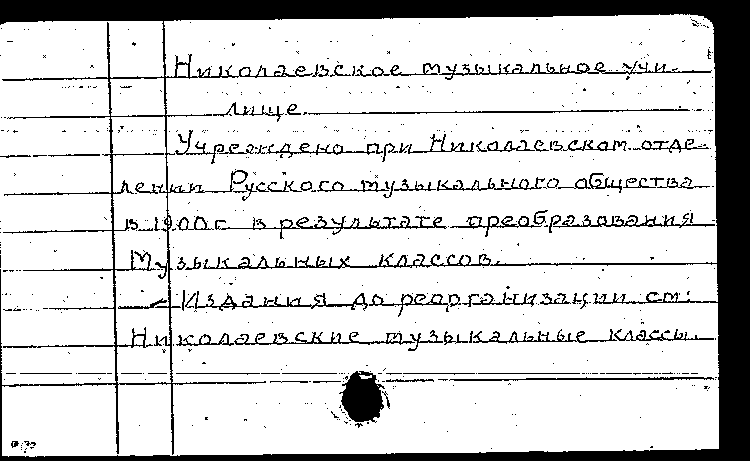 Николаевское музыкальное учи-
лище.
Учреждено при Николаевском отде-
лении Русского музыкального общества
в 1900 г. в результате преобразования
Музыкальных классов.
– Издания до реорганизации см:
Николаевские музыкальные классы.